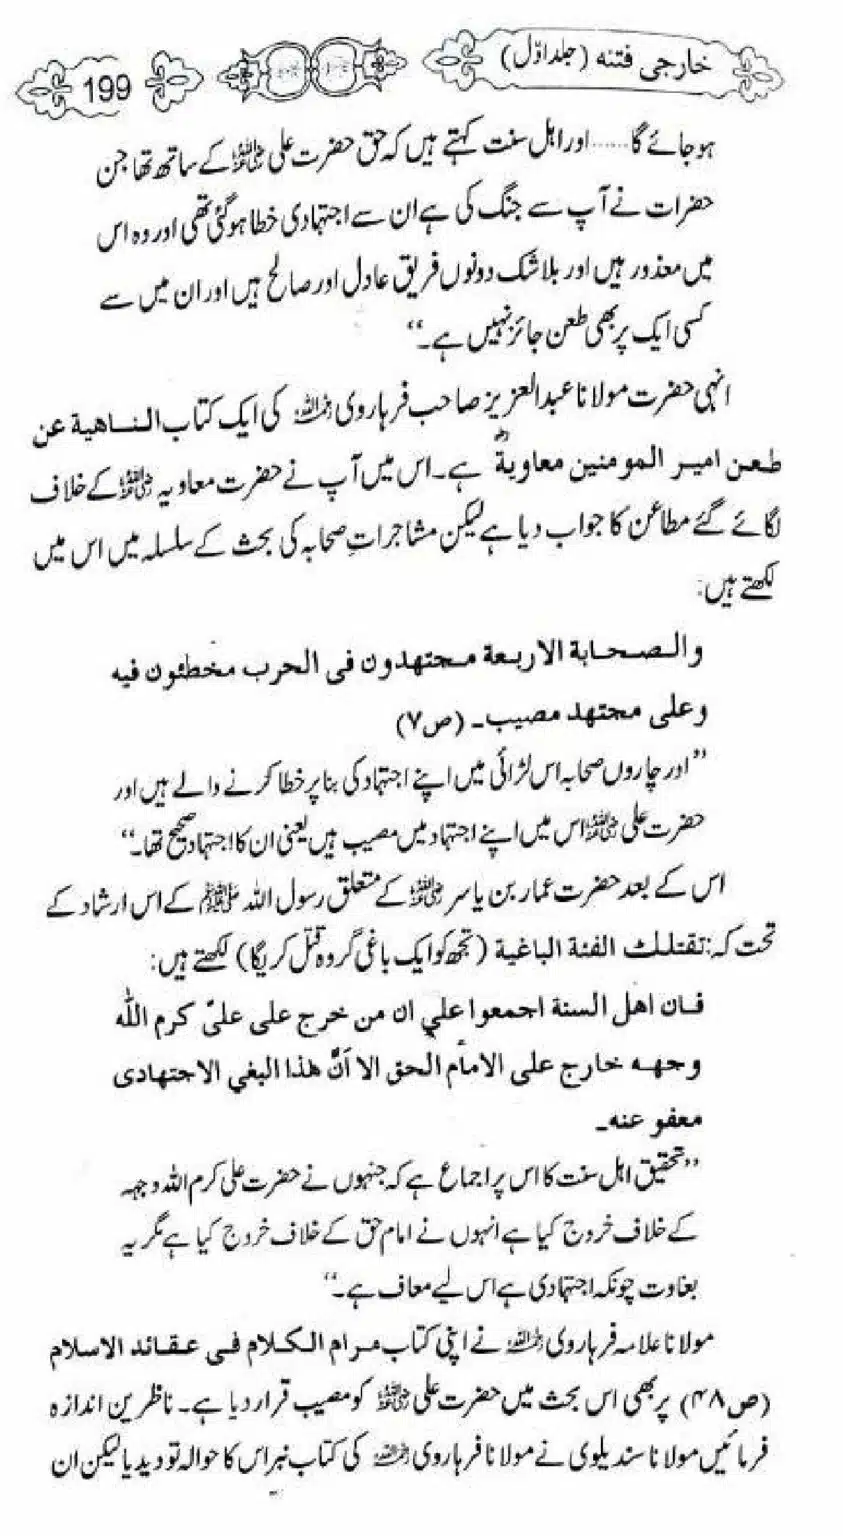 خارجی فتنہ (جلد اوّل)
199
ہو جائے گا...... اور اہل سنت کہتے ہیں کہ حق حضرت علی رضی اللہ عنہ کے ساتھ تھا جن
حضرات نے آپ سے جنگ کی ہے ان سے اجتہادی خطا ہو گئی تھی اور وہ اس
میں معذور ہیں اور بلا شک دونوں فریق عادل اور صالح ہیں اور ان میں سے
کسی ایک پر بھی طعن جائز نہیں ہے۔“
انہی حضرت مولانا عبدالعزیز صاحب فرہاروی رحمہ اللہ کی ایک کتاب الناهية عن
طعن امير المومنين معاوية ہے۔ اس میں آپ نے حضرت معاویہ رضی اللہ عنہ کے خلاف
لگائے گئے مطاعن کا جواب دیا ہے لیکن مشاجراتِ صحابہ کی بحث کے سلسلہ میں اس میں
لکھتے ہیں:
والصحابة الاربعة مجتهدون فى الحرب مخطئون فيه
وعلى مجتهد مصيب۔ (ص۷)
”اور چاروں صحابہ اس لڑائی میں اپنے اجتہاد کی بنا پر خطا کرنے والے ہیں اور
حضرت علی رضی اللہ عنہ اس میں اپنے اجتہاد میں مصیب ہیں یعنی ان کا اجتہاد صحیح تھا۔“
اس کے بعد حضرت عمار بن یاسر رضی اللہ عنہ کے متعلق رسول اللہ ﷺ کے اس ارشاد کے
تحت کہ: تقتلك الفئة الباغية (تجھ کو ایک باغی گروہ قتل کریگا) لکھتے ہیں:
فان اهل السنة اجمعوا علي ان من خرج على علىّ كرم الله
وجهه خارج على الامام الحق الا اَنَّ هذا البغي الاجتهادى
معفو عنه۔
”تحقیق اہل سنت کا اس پر اجماع ہے کہ جنہوں نے حضرت علی کرم اللہ وجہہ
کے خلاف خروج کیا ہے انہوں نے امام حق کے خلاف خروج کیا ہے مگر یہ
بغاوت چونکہ اجتہادی ہے اس لیے معاف ہے۔“
مولانا علامہ فرہاروی رحمہ اللہ نے اپنی کتاب مرام الكلام فى عقائد الاسلام
(ص۴۸) پر بھی اس بحث میں حضرت علی رضی اللہ عنہ کو مصیب قرار دیا ہے۔ ناظرین اندازہ
فرمائیں مولانا سندیلوی نے مولانا فرہاروی رحمہ اللہ کی کتاب نبراس کا حوالہ تو دیدیا لیکن ان